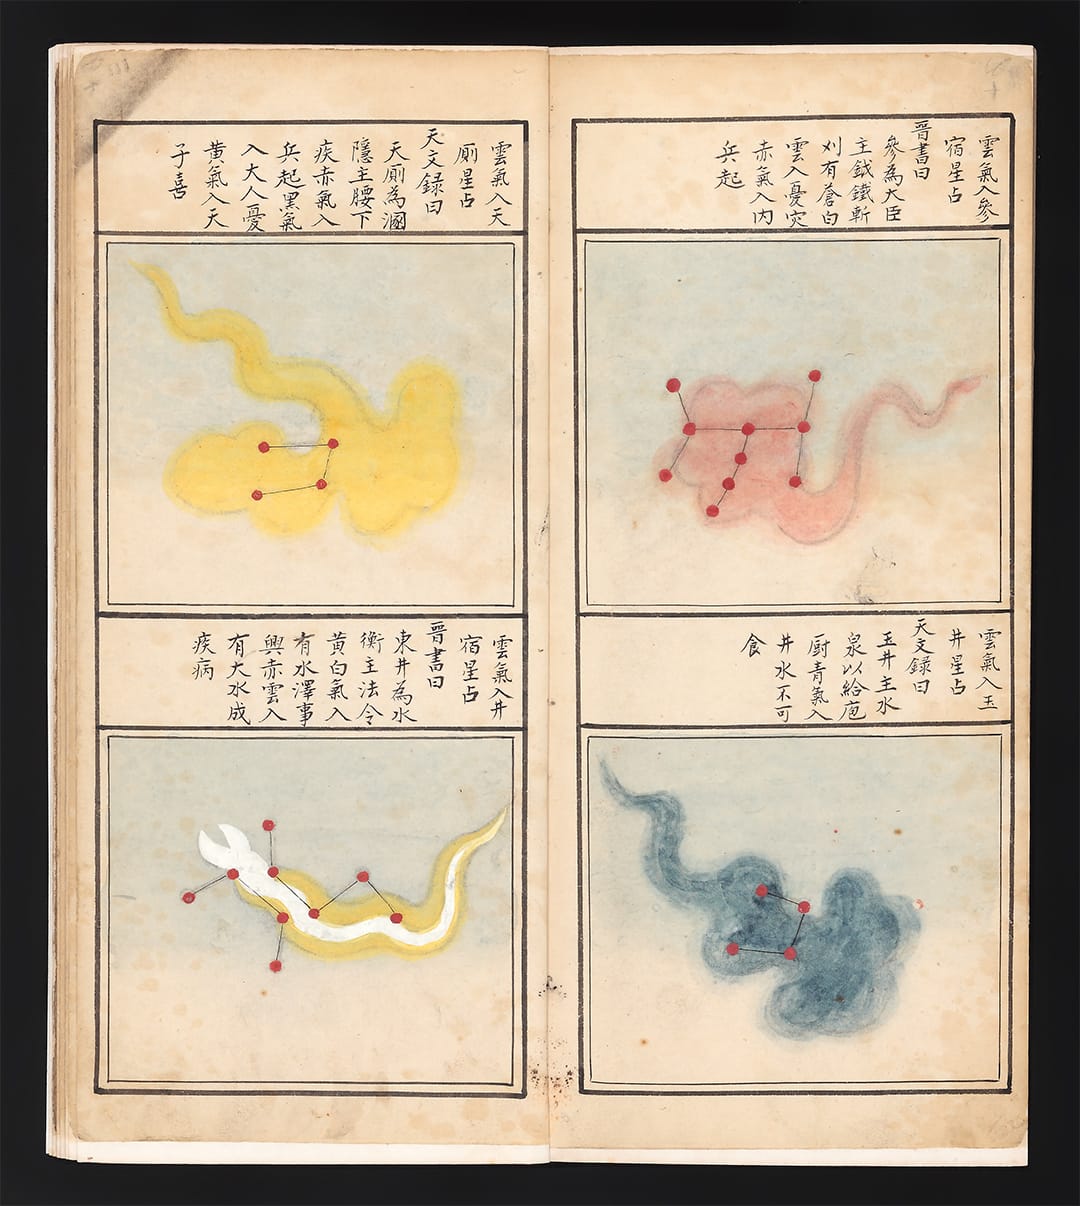 雲氣入參
宿星占
晋書曰
參為大臣
主鉞鐵斬
刈有蒼白
雲入憂灾
赤氣入內
兵起
雲氣入玉
井星占
天文録曰
玉井主水
泉以給庖
厨青氣入
井水不可
食
雲氣入天
厠星占
天文録曰
天厠為溷
隱主腰下
疾赤氣入
兵起黒氣
入大人憂
黄氣入天
子喜
雲氣入井
宿星占
晋書曰
東井為水
衡主法令
黄白氣入
有水澤事
興赤雲入
有大水成
疾病